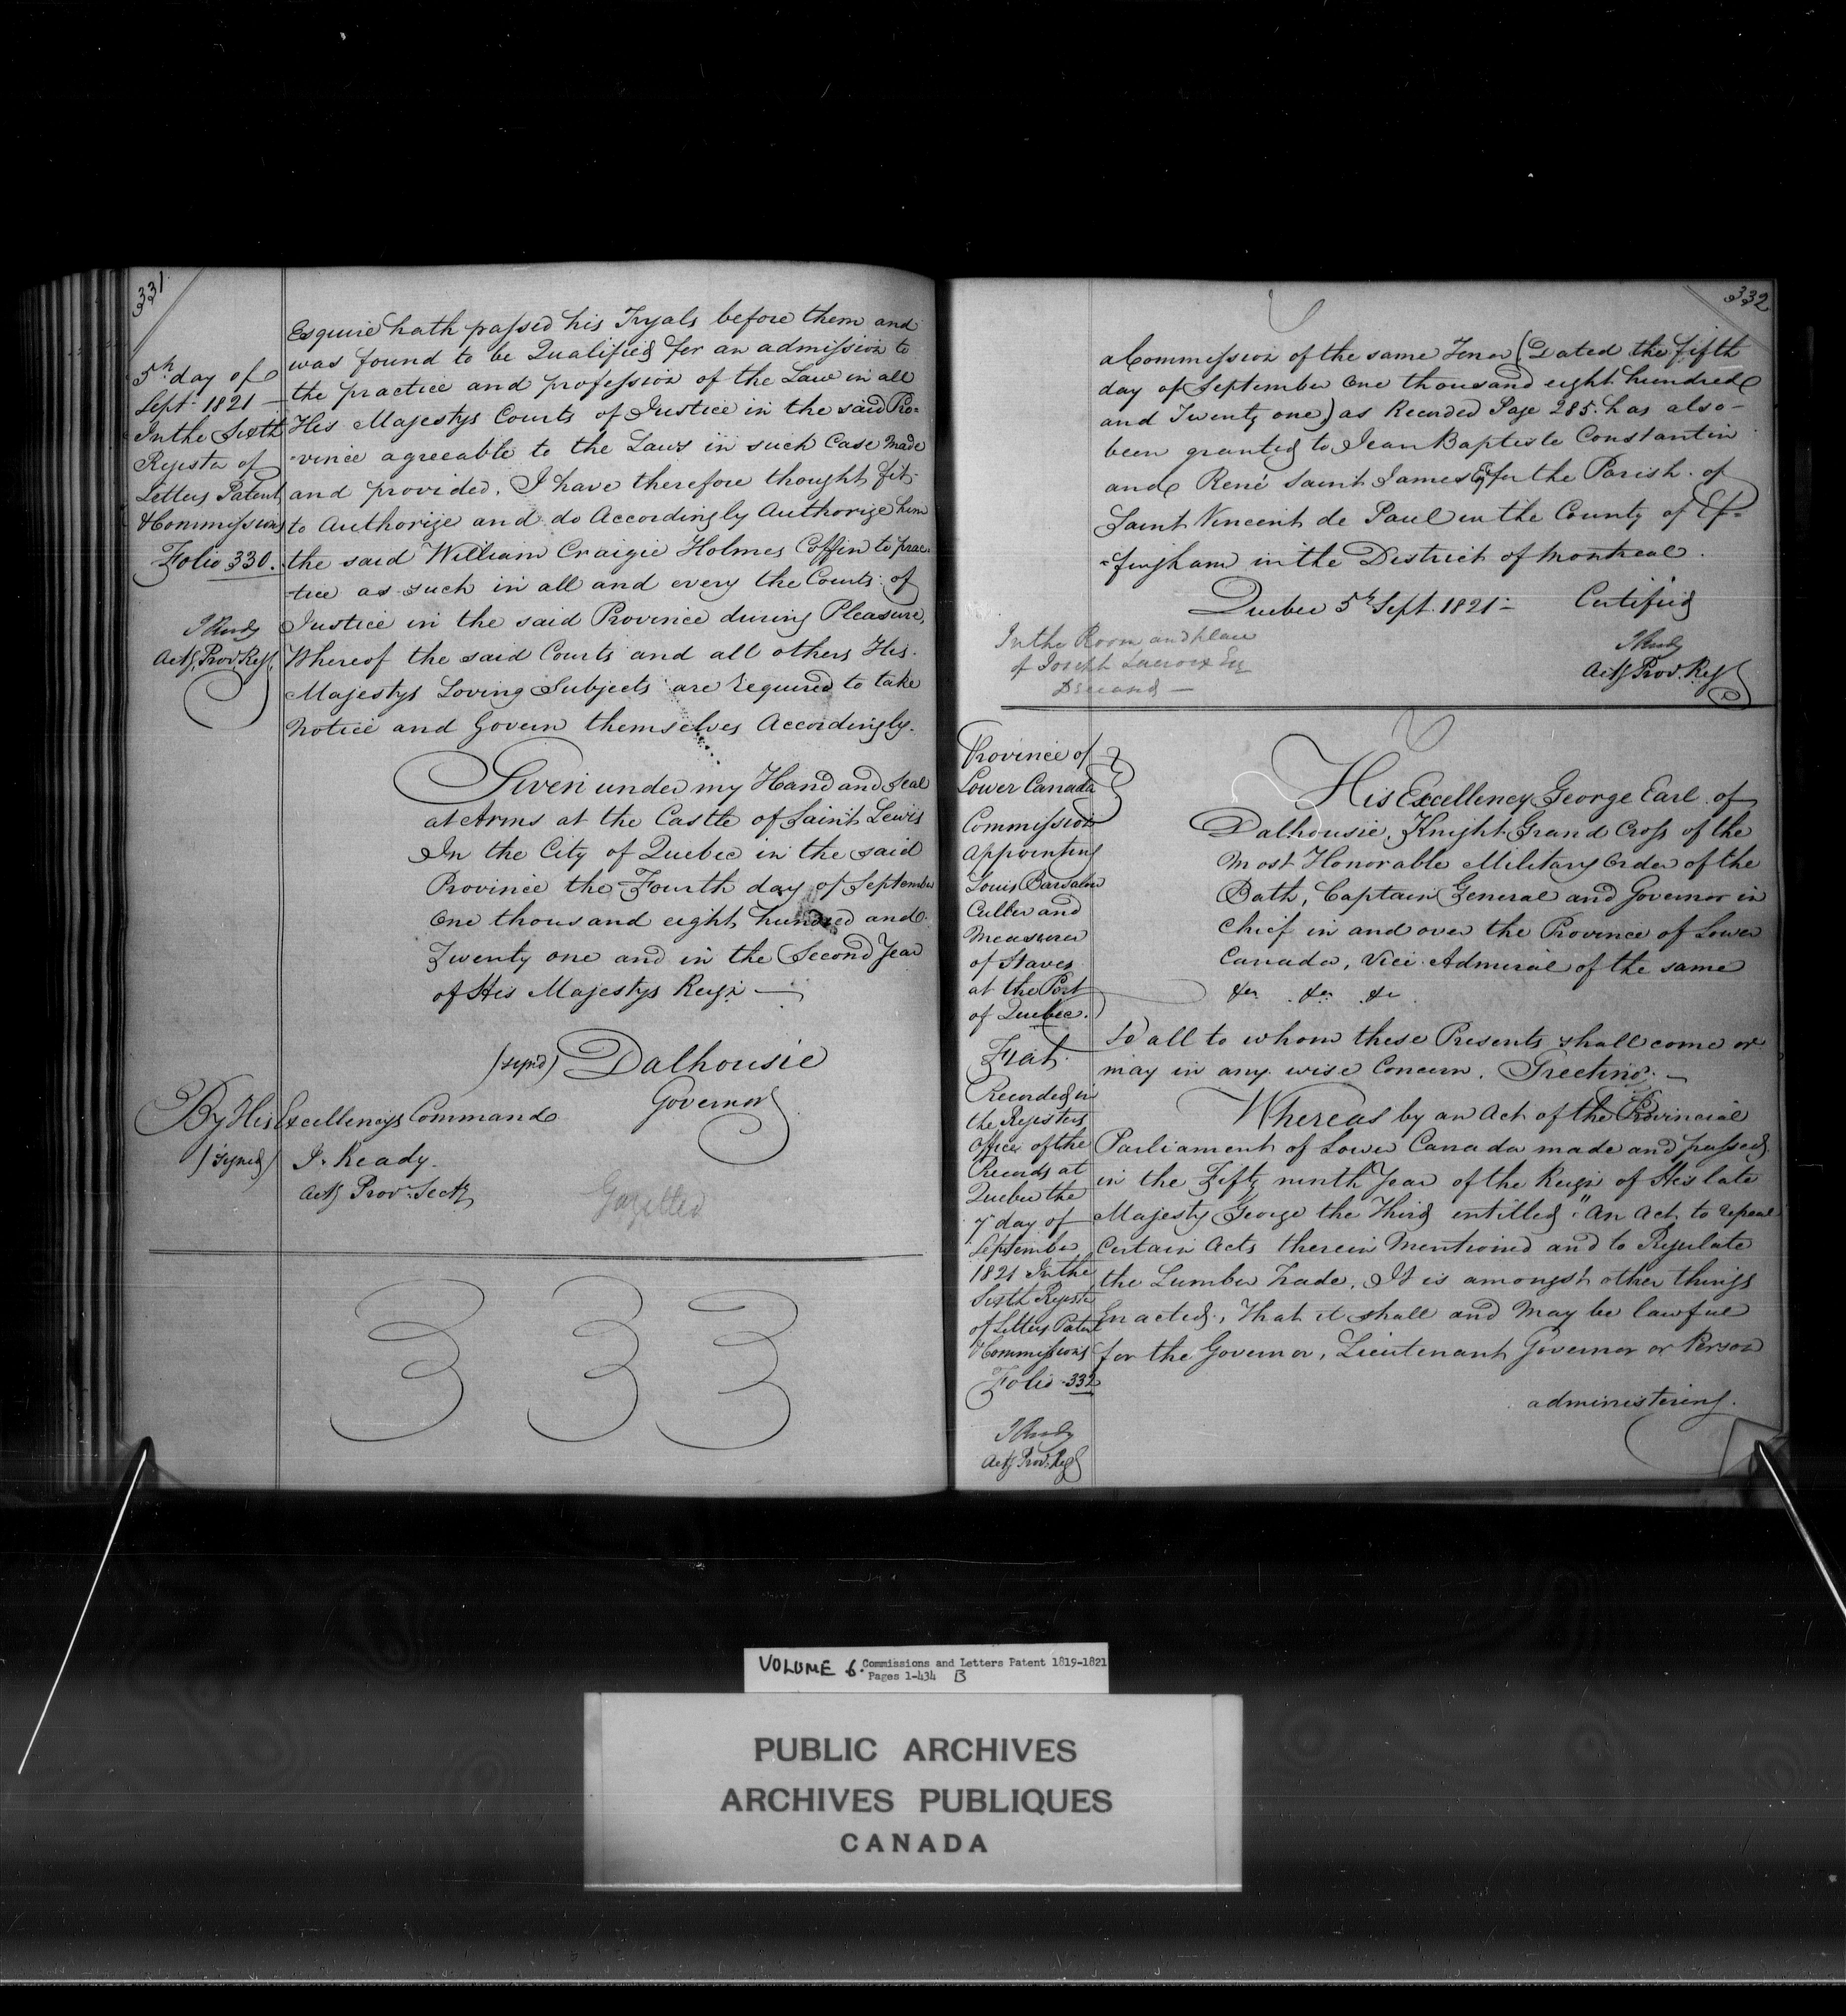 331
5th day of
Sept. 1821
In the Sixth
Register of
Letters Patent
& Commissions
Folio 330.
J Ready
Actg Prov. Reg.
Esquire hath passed his Tryals before them and
was found to be Qualified for an admission to
the practice and profession of the Law in all
His Majestys Courts of Justice in the said Pro-
-vince agreeable to the Laws in such Case made
and provided. I have therefore thought fit
to Authorize and do Accordingly Authorize him
the said William Craigie Holmes Coffin to prac-
-tice as such in all and every the Courts of
Justice in the said Province during Pleasure,
Whereof the said Courts and all others His
Majestys Loving Subjects are required to take
notice and Govern themselves Accordingly.
Given under my Hand and Seal
at Arms at the Castle of Saint Lewis
In the City of Quebec in the said
Province the Fourth day of September
One thousand eight hundred and
Twenty one and in the Second Year
of His Majestys Reign
(signed) Dalhousie
Governor
By His Excellencys Command
(signed) J. Ready.
Actg Prov. Secty
Gazetted
333
332
a Commission of the same Tenor (Dated the fifth
day of September One thousand eight hundred
and Twenty one) as Recorded Page 285. has also
been granted to Jean Baptiste Constantin
and René Saint James Esq for the Parish of
Saint Vincent de Paul in the County of Ef-
-fingham in the District of Montreal.
Quebec 5th Sept. 1821 - Certified
J Ready
Actg Prov. Reg
In the Room and place
of Joseph Lacroix Esq
Deceased
Province of
Lower Canada
Commission
Appointing
Louis Barsalou
Culler and
Measurer
of Staves
at the Port
of Quebec.
Fiat.
Recorded in
the Registers
Office of the
Records at
Quebec the
7th day of
September
1821 In the
Sixth Register
of Letters Patent
& Commissions
Folio 332
J Ready
Actg Prov. Reg
His Excellency George Earl of
Dalhousie, Knight Grand Cross of the
Most Honorable Military Order of the
Bath, Captain General and Governor in
Chief in and over the Province of Lower
Canada, Vice Admiral of the same
&c. &c. &c.
To all to whom these Presents shall come or
may in any wise Concern. Greeting.
Whereas by an Act of the Provincial
Parliament of Lower Canada made and passed
in the Fifty ninth Year of the Reign of His late
Majesty George the Third entitled "An Act to repeal
Certain Acts therein Mentioned and to Regulate
the Lumber Trade, It is amongst other things
Enacted, That it shall and May be lawful
for the Governor, Lieutenant Governor or Person
administering
VOLUME 6. Commissions and Letters Patent 1819-1821
Pages 1-434 B
PUBLIC ARCHIVES
ARCHIVES PUBLIQUES
CANADA